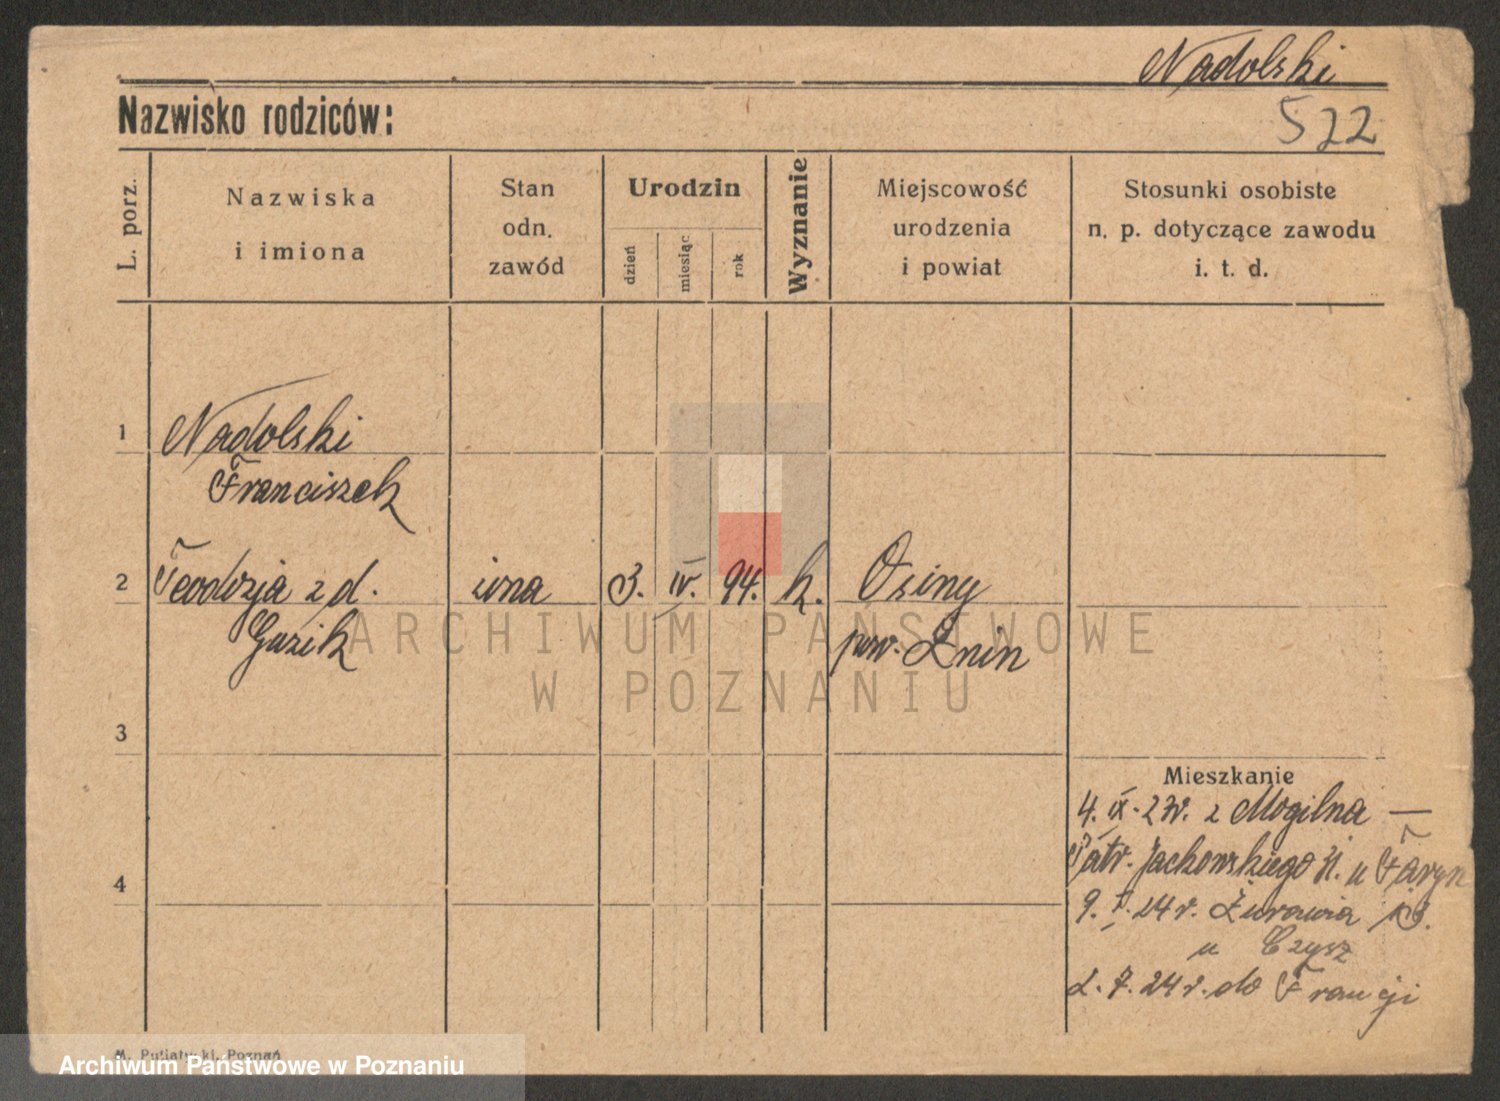 Nadolski
Nazwisko rodziców:
522
L. porz.
Nazwiska
i imiona
Stan
odn.
zawód
Urodzin
dzień
miesiąc
rok
Wyznanie
Miejscowość
urodzenia
i powiat
Stosunki osobiste
n. p. dotyczące zawodu
i. t. d.
1
Nadolski
Franciszek
2
Teodozja z d.
Guzik
żona
3. IV. 94.
k.
Osiny
pow. Żnin
3
Mieszkanie
4. IX. 23r. z Mogilna —
Patr. Jackowskiego
4
24r. Żurawia 13.
u Czysz
2. 7. 24 r. do Francji
ARCHIWUM PAŃSTWOWE
W POZNANIU
M. Putiatycki, Poznań
Archiwum Państwowe w Poznaniu